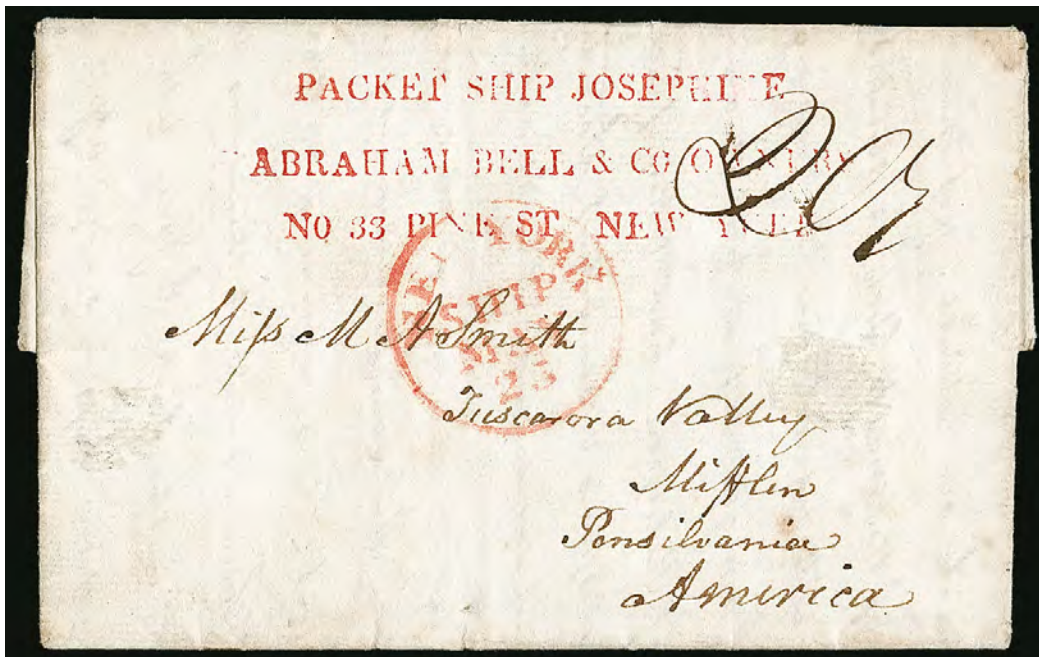 PACKET SHIP JOSEPHINE
ABRAHAM BELL & CO OWNERS
NO 33 PINE ST NEW YORK
NEW YORK
SHIP
MAY
23
Miſs M A Smith
Tuscarora Valley
Mifflen
Pensilvania
America